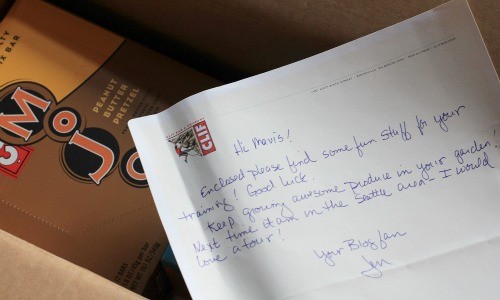 CLIF
Hi Mavis!
Enclosed please find some fun stuff for your
training! Good luck.
Keep growing awesome produce in your garden!
Next time I am in the Seattle area - I would
love a tour!
Your Blog fan
Jen
MOJO
PEANUT
BUTTER
PRETZEL
IX BAR